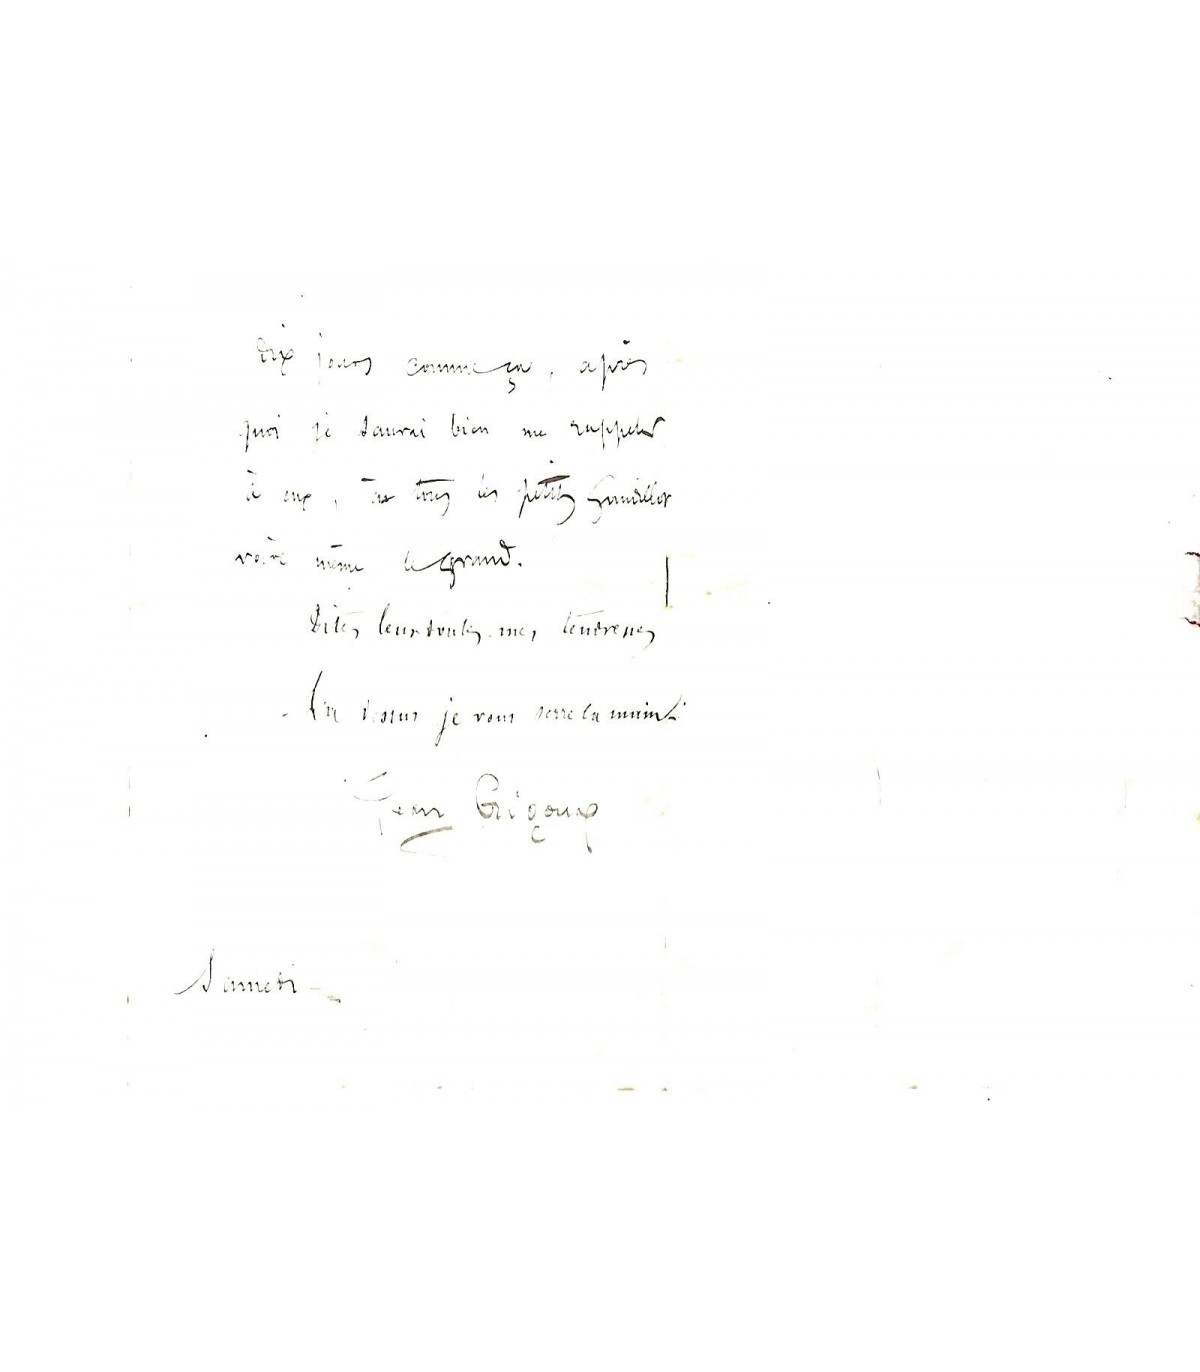 dix jours comme ça, après
quoi je saurai bien me rappeler
à eux, à tous les petits Gaudillot
voire même le grand.
Dites leur toutes mes tendresses
Là dessus je vous serre la main.
Jean Gigoux
Samedi